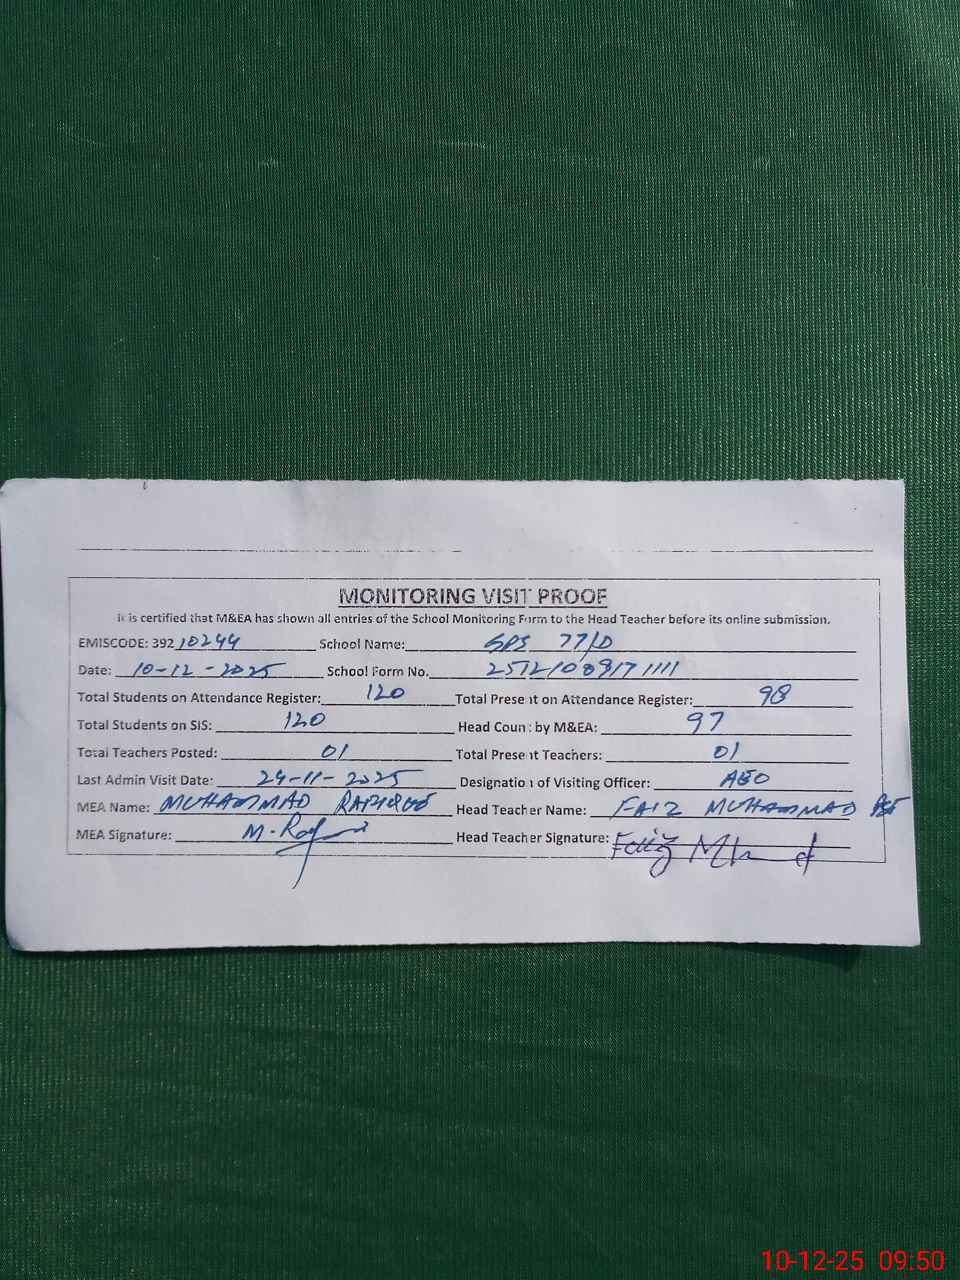 MONITORING VISIT PROOF
It is certified that M&EA has shown all entries of the School Monitoring Form to the Head Teacher before its online submission.
EMISCODE: 392 10244 School Name: GPS 77/D
Date: 10-12-2025 School Form No. 2512108917 1111
Total Students on Attendance Register: 120 Total Present on Attendance Register: 98
Total Students on SIS: 120 Head Count by M&EA: 97
Total Teachers Posted: 01 Total Present Teachers: 01
Last Admin Visit Date: 24-11-2025 Designation of Visiting Officer: AEO
MEA Name: MUHAMMAD Head Teacher Name: FAIZ MUHAMMAD
MEA Signature: Head Teacher Signature: Faiz
10-12-25 09:50